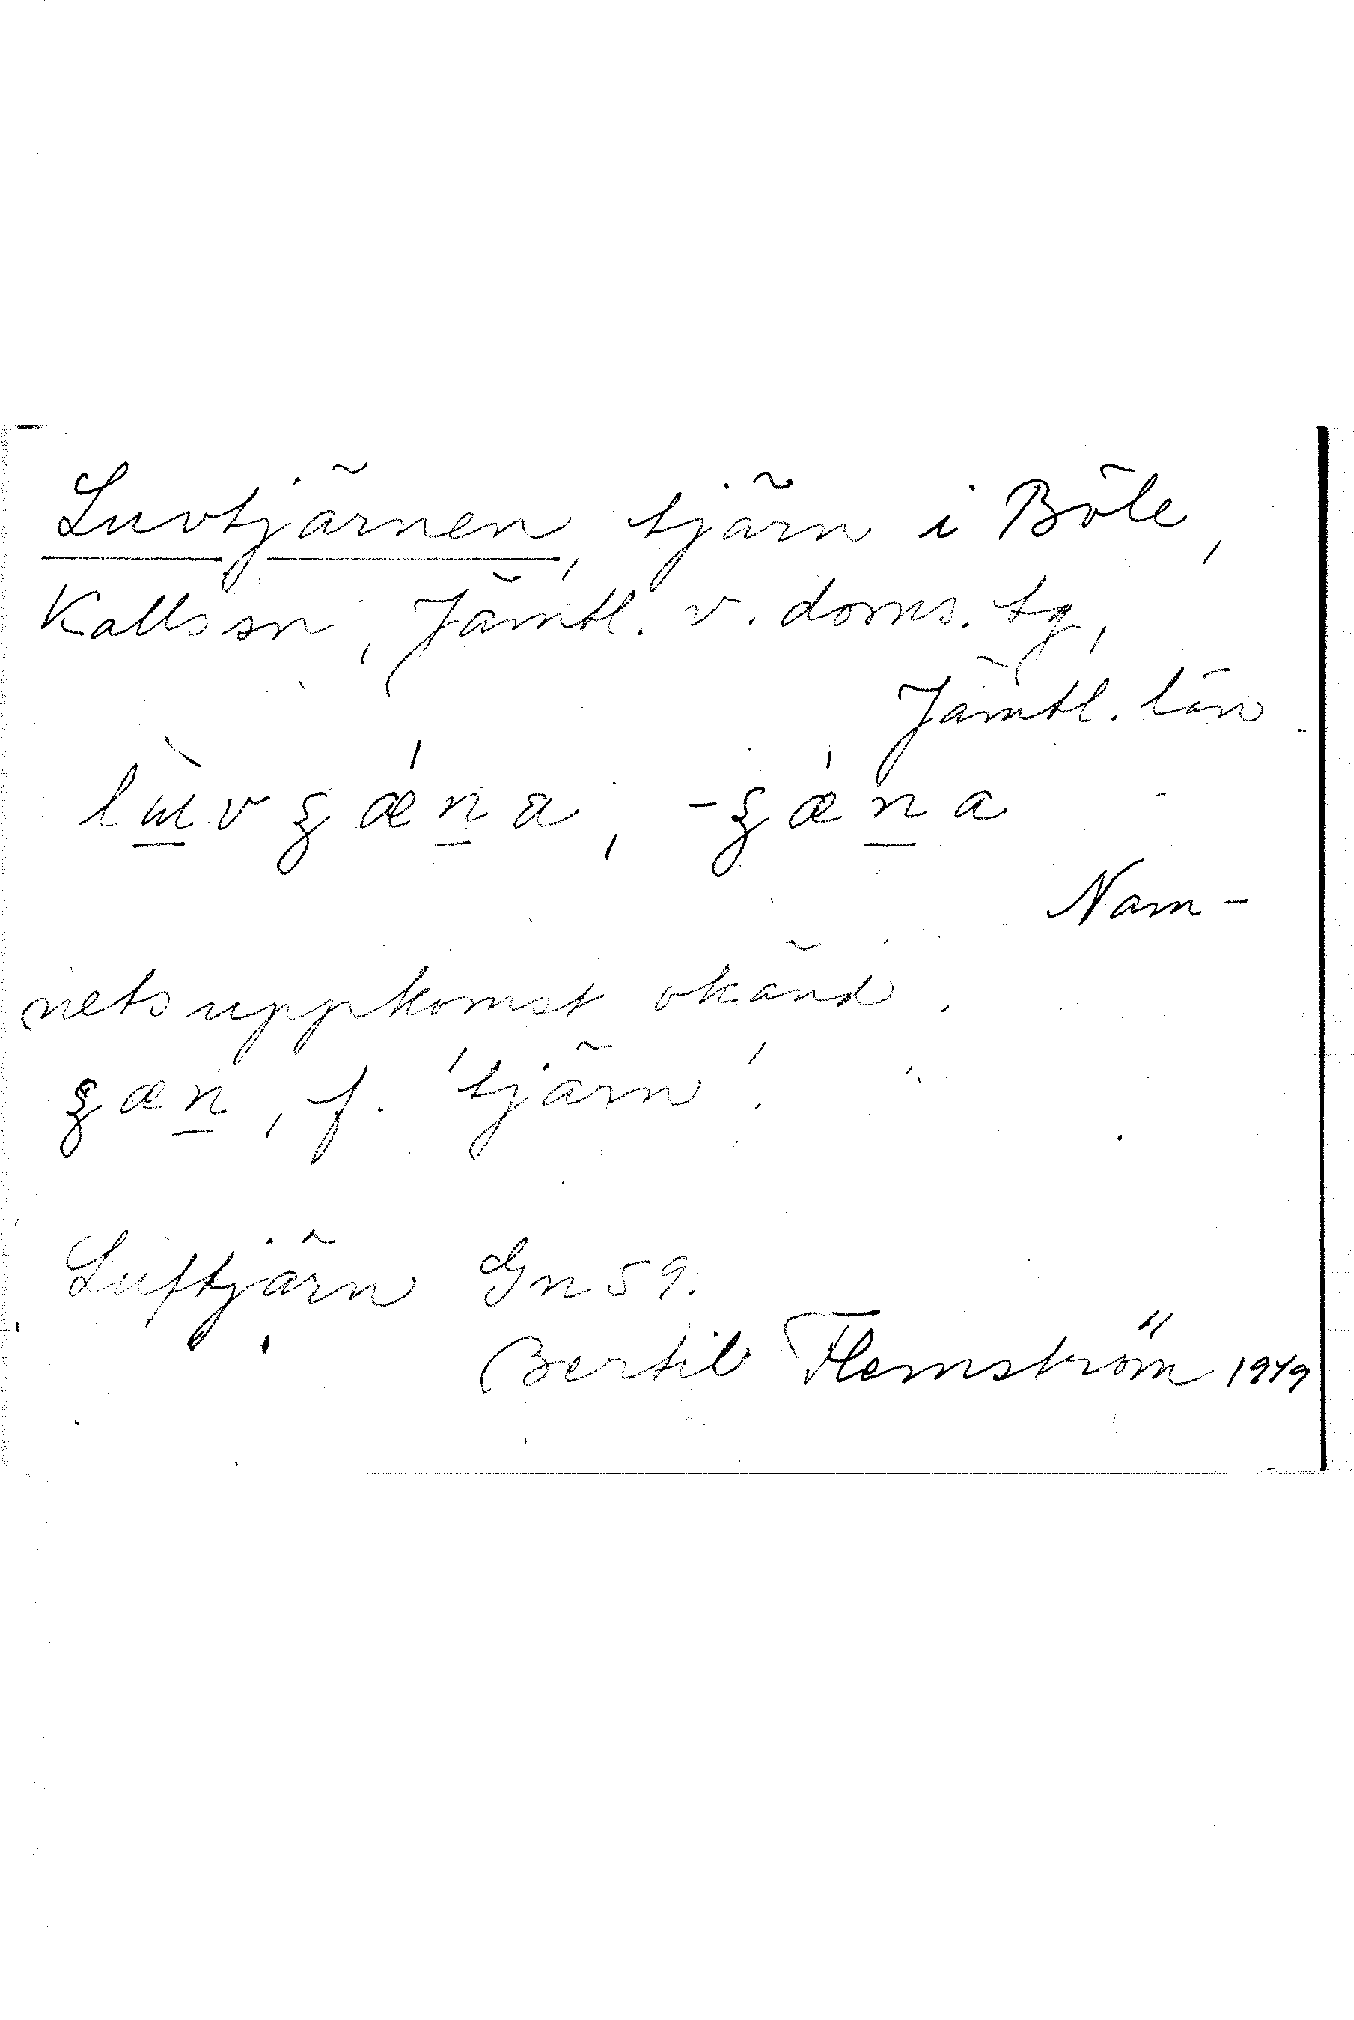 Luvtjärnen, tjärn i Böle,
Kalls sn, Jämtl. v. doms. tg,
Jämtl. län
Nam-
nets uppkomst okänd.
, f. 'tjärn'.
Luftjärn Gn 59.
Bertil Flemström 1949